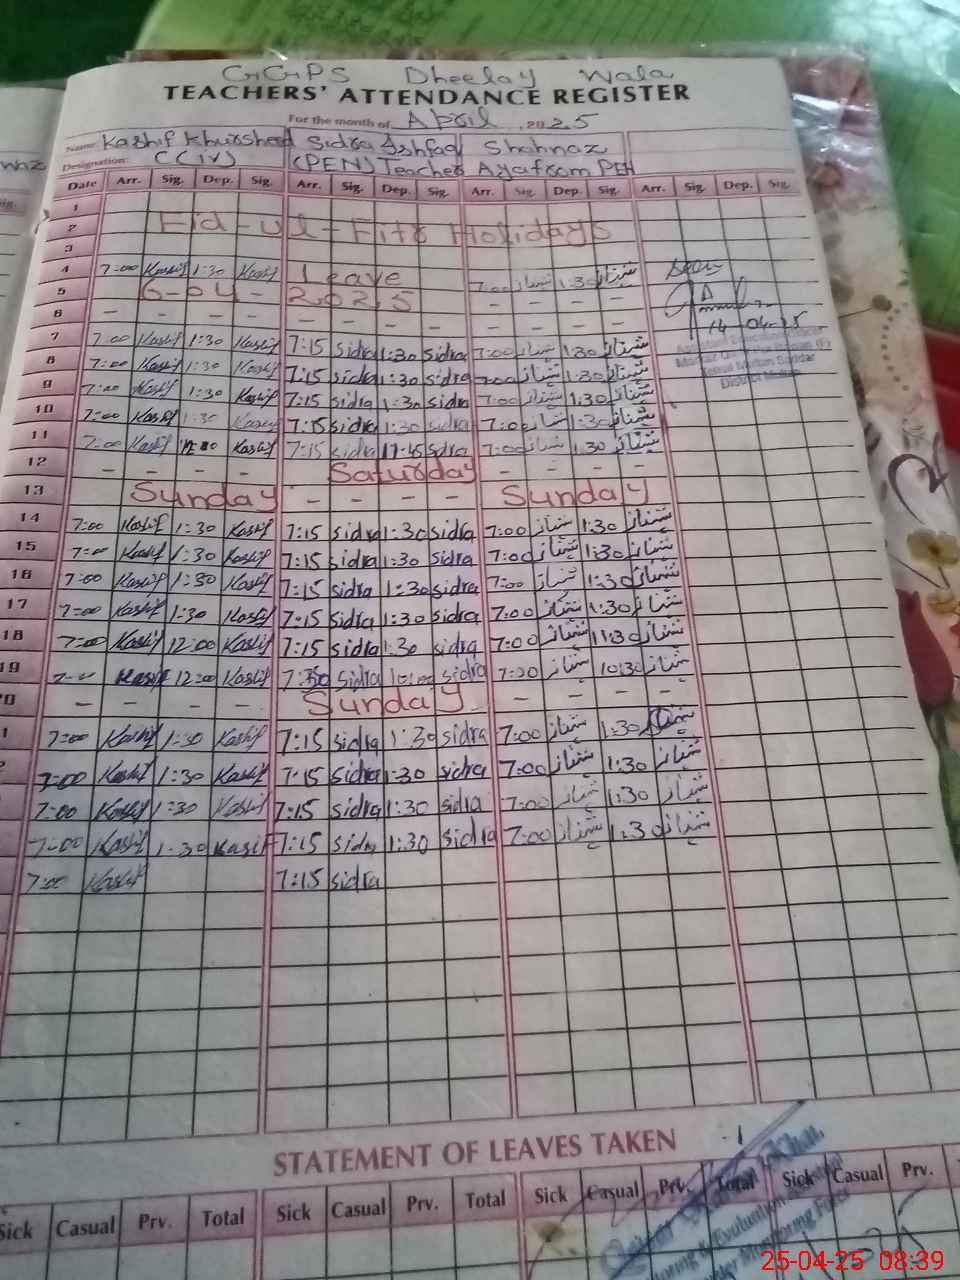 GGPS Dheelay Wala
TEACHERS' ATTENDANCE REGISTER
For the month of April, 2025
Name: Kashif Khursheed Sidra Ashfaq Shahnaz
Designation: C(IV) (PEN) Teacher PEN
Date Arr. Sig. Dep. Sig. Arr. Sig. Dep. Sig. Arr. Sig. Dep. Sig. Arr. Sig. Dep. Sig.
1
2 Eid-ul-Fitr Holidays
3
4 7:00 Kashif 1:30 Kashif Leave 7:00 شہناز 1:30 شہناز
5 6-04-2025
6 - - - - - - - - - - - -
14-04-25
7 7:00 Kashif 1:30 Kashif 7:15 sidra 1:30 sidra 7:00 شہناز 1:30 شہناز
8 7:00 Kashif 1:30 Kashif 7:15 sidra 1:30 sidra 7:00 شہناز 1:30 شہناز
9 7:00 Kashif 1:30 Kashif 7:15 sidra 1:30 sidra 7:00 شہناز 1:30 شہناز
10 7:00 Kashif 1:30 Kashif 7:15 sidra 1:30 sidra 7:00 شہناز 1:30 شہناز
11 7:00 Kashif Kashif 7:15 sidra 11:45 sidra 7:00 شہناز 1:30 شہناز
12 - - - - Saturday - - - -
13 Sunday - - - - Sunday
14 7:00 Kashif 1:30 Kashif 7:15 sidra 1:30 sidra 7:00 شہناز 1:30 شہناز
15 7:00 Kashif 1:30 Kashif 7:15 sidra 1:30 sidra 7:00 شہناز 1:30 شہناز
16 7:00 Kashif 1:30 Kashif 7:15 sidra 1:30 sidra 7:00 شہناز 1:30 شہناز
17 7:00 Kashif 1:30 Kashif 7:15 sidra 1:30 sidra 7:00 شہناز 1:30 شہناز
18 7:00 Kashif 12:00 Kashif 7:15 sidra 1:30 sidra 7:00 شہناز 11:30 شہناز
19 Kashif 12:00 Kashif 7:30 sidra 10:00 sidra 7:00 شہناز 10:30 شہناز
- - - - Sunday - - - -
7:00 Kashif 1:30 Kashif 7:15 sidra 1:30 sidra 7:00 شہناز 1:30 شہناز
7:00 Kashif 1:30 Kashif 7:15 sidra 1:30 sidra 7:00 شہناز 1:30 شہناز
7:00 Kashif 1:30 Kashif 7:15 sidra 1:30 sidra 7:00 شہناز 1:30 شہناز
7:00 Kashif 1:30 Kasif 7:15 sidra 1:30 sidra 7:00 شہناز 1:30 شہناز
7:00 Kashif 7:15 sidra
STATEMENT OF LEAVES TAKEN
Sick Casual Prv. Total Sick Casual Prv. Total Sick Casual Prv. Total Sick Casual Prv.
25-04-25 08:39